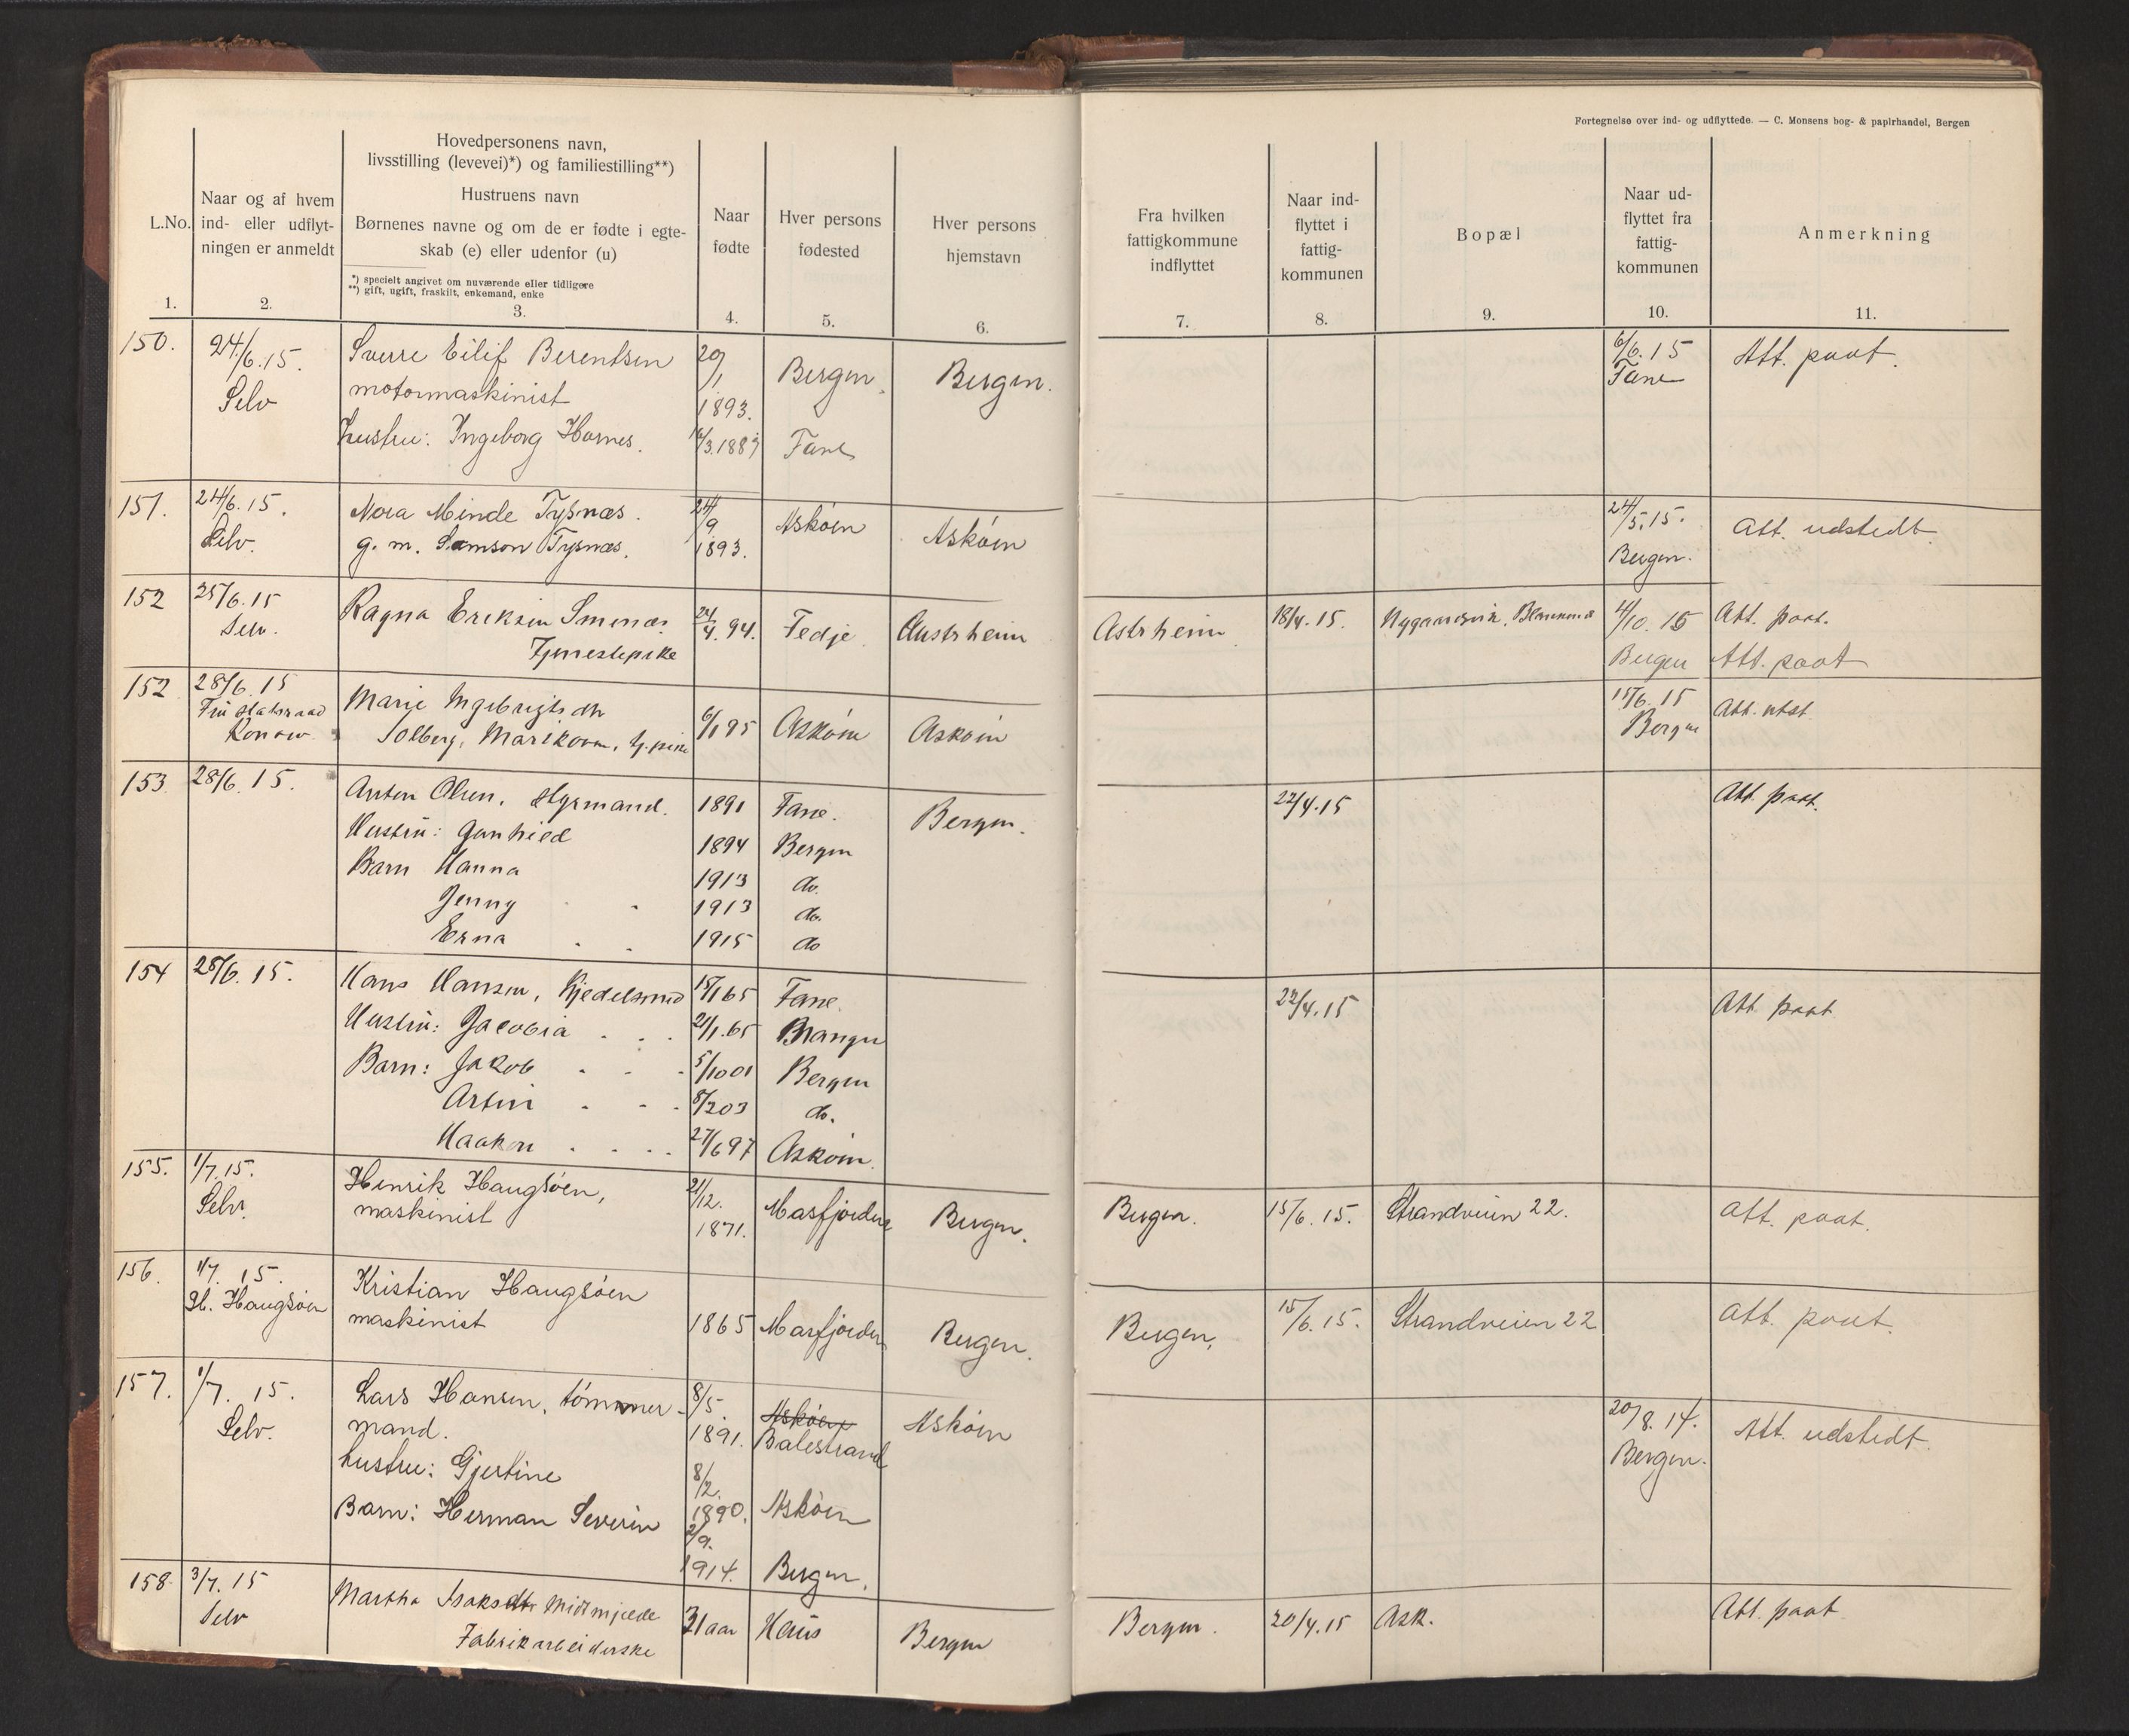 Fortegnelse over ind- og udflyttede. — C. Monsens bog- & papirhandel, Bergen
L.No.
1.
Naar og af hvem
ind- eller udflyt-
ningen er anmeldt
2.
Hovedpersonens navn,
livsstilling (levevei)*) og familiestilling**)
Hustruens navn
Børnenes navne og om de er fødte i egte-
skab (e) eller udenfor (u)
*) specielt angivet om nuværende eller tidligere
**) gift, ugift, fraskilt, enkemand, enke
3.
Naar
fødte
4.
Hver persons
fødested
5.
Hver persons
hjemstavn
6.
Fra hvilken
fattigkommune
indflyttet
7.
Naar ind-
flyttet i
fattig-
kommunen
8.
Bopæl
9.
Naar ud-
flyttet fra
fattig-
kommunen
10.
Anmerkning
11.
150.
24/6.15.
Selv
Sverre Eilif Berentsen
motormaskinist
hustru: Ingeborg Hornes.
29/1
1893.
Bergen.
Fane
Bergen.
6/6.15
Fane
Att. paat.
151.
24/6.15.
Selv.
Nora Minde Tysnæs.
g. m. Samson Tysnæs.
24/9
1893.
Askøen
Askøen
24/5.15.
Bergen.
Att. udstedt.
152
25/6.15
Selv.
Ragna Eriksen
Tjenestepike
24/4.94.
Fedje
Austrheim
Astrheim
18/4.15.
4/10.15
Bergen
Att. paat.
Att. paat
152
28/6.15
Fru statsraad
Konow
Marie Ingebrigtsdtr
Solberg, Marikoven, tj.pike
6/1 95
Askøen
Askøen
15/6.15
Bergen
Att. utst.
153
28/6.15.
Anton Olsen, styrmand.
Hustru: Gunhild
Barn Hanna
Jenny
Erna
1891
1894
1913
1913
1915
Fane.
Bergen
do.
do.
do
Bergen.
22/4.15
Att. paat.
154
28/6.15.
Hans Hansen, Kjedelsmed
Hustru: Jacobia
Barn: Jakob
Haakon
15/1 65
21/1.65
5/10 01
8/2 03
27/6 97
Fane.
Bergen
do.
Askøen.
22/4.15
Att. paat
155.
1/7.15.
Selv.
Henrik Haugsøen,
maskinist
21/12.
1871.
Masfjorden
Bergen.
Bergen.
15/6.15.
Strandveien 22.
Att. paat.
156.
1/7.15.
H. Haugsøen
Kristian Haugsøen
maskinist
1865
Masfjorden
Bergen.
Bergen.
15/6.15.
Strandveien 22
Att. paat.
157.
1/7.15.
Selv.
Lars Hansen, tømmer-
mand.
hustru: Gjertine
Barn: Herman Severin
8/5
1891.
8/2.
1890.
2/9.
1914.
Askøen
Balestrand
Askøen
Bergen.
Askøen
20/8.14.
Bergen.
Att. udstedt.
158.
3/7.15
Selv
Martha Isaksdtr Midtmjelde
Fabrikarbeiderske
31 aar
Haus
Bergen
Bergen.
20/4.15
Ask.
Att. paat